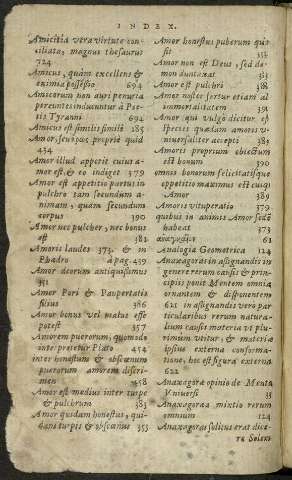 INDEX.
Amicitia vera virtute con-
ciliata, magnus thesaurus
724
Amicus, quàm excellens &
eximia possessio 694
Amicorum non auri penuria
pereuntes inducuntur à Poe-
tis Tyranni 694
Amicus est similis simili 185
Amor, seu epos proprie quid
434
Amor illud appetit cuius a-
mor est, & eo indiget 379
Amor est appetitio partus in
pulchro tam secundum a-
nimam, quàm secundum
corpus 390
Amor nec pulcher, nec bonus
est 382
Amoris laudes 373. & in
Phædro à pag. 439
Amor deorum antiquissimus
351
Amor Pori & Paupertatis
filius 386
Amor bonus vel malus esse
potest 357
Amorem puerorum, quomodo
interpretetur Plato 434
inter honestum & obscœnum
puerorum amorem discri-
men 458
Amor est medius inter turpe
& pulchrum 383
Amor quidam honestus, qui-
dam turpis & obscœnus 353
Amor honestus puberum qui
sit
Amor non est Deus, sed dæ-
mon duntaxat 383
Amor est pulchri 388
Amor noster fertur etiam ad
immortalitatem 391
Amor qui vulgò dicitur est
species quædam amoris v-
niuersaliter accepti 389
Amoris proprium obiectum
est bonum 390
omnis bonorum felicitatisque
appetitio maximus est cuiq;
Amor 389
Amoris vituperatio 379.
quibus in animis Amor sedē
habeat 373
61
Analogia Geometrica 124
Anaxagoras in assignandis in
genere rerum causis & prin-
cipiis ponit Mentem omnia
ornantem & disponentem
621 in assignandis verò par-
ticularibus rerum natura-
lium causis materia vt plu-
rimum vtitur, & materiæ
ipsius externa conforma-
tione, hoc est figura externa
622
Anaxagoræ opinio de Mente
Vniuersi 23
Anaxagoræa mixtio rerum
omnium 124
Anaxagoras solitus erat dice-
re Solem